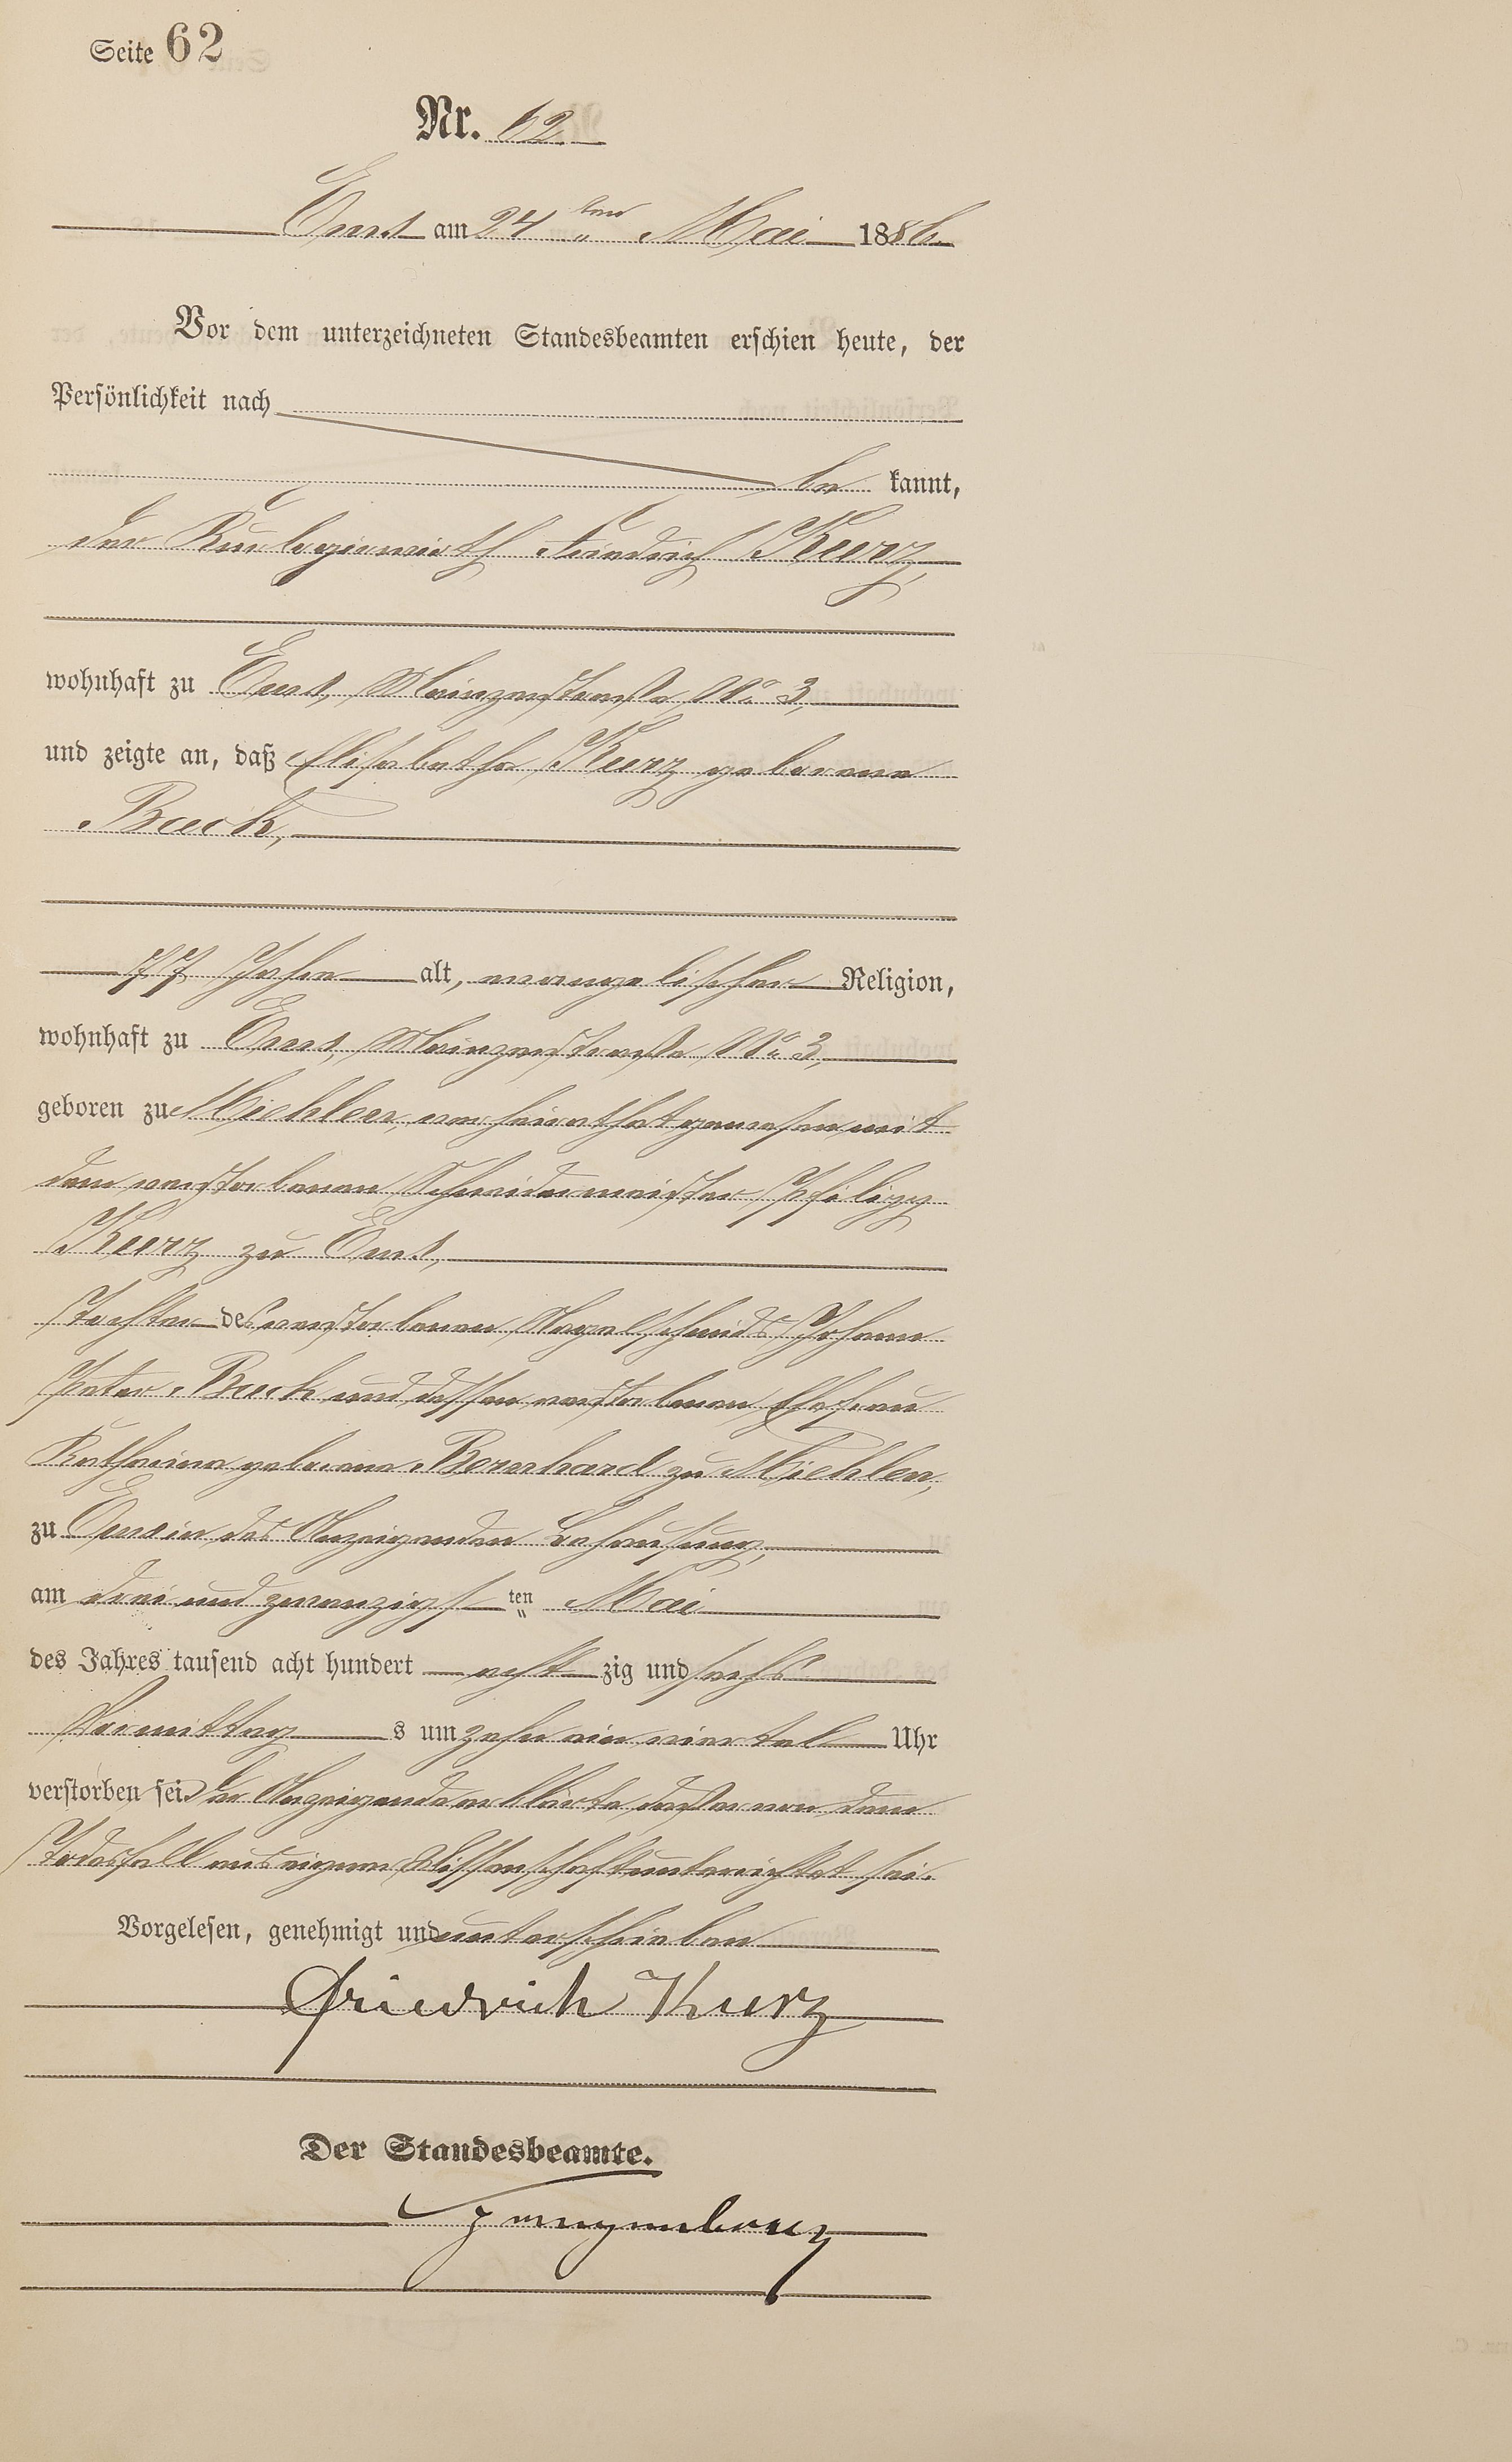 Seite 62
Nr. 62
Ems am 24 ten Mai 1886.
Vor dem unterzeichneten Standesbeamten erschien heute, der
Persönlichkeit nach
be kannt,
der Kurlogirwirth Friedrich Kurz,
wohnhaft zu Ems, Mainzerstraße No 3,
und zeigte an, daß Elisabetha Kurz geborene
Buck,
77 Jahre alt, evangelischer Religion,
wohnhaft zu Ems, Mainzerstraße No 3,
geboren zu Miehlen, verheirathet gewesen mit
dem verstorbenen Schneidermeister Philipp
Kurz zu Ems,
Tochter des verstorbenen Nagelschmids Johann
Peter Buck und dessen verstorbenen Ehefrau
Katharina geborene Bernhard zu Miehlen,
zu Ems in des Anzeigenden Behausung,
am drei und zwanzigst ten Mai
des Jahres tausend acht hundert acht zig und sechs
Vormittag s um zehn ein viertel Uhr
verstorben sei. Der Anzeigende erklärte, daß er von dem
Todesfall aus eigener Wissenschaft unterrichtet sei.
Vorgelesen, genehmigt und unterschrieben
Friedrich Kurz
Der Standesbeamte.